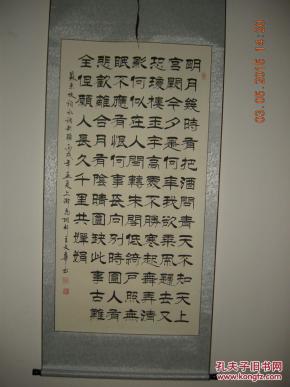 明月幾時有把酒問青天不知天上
宮闕今夕是何年我欲乘風歸去又
恐瓊樓玉宇高處不勝寒起舞弄清
影何似在人間轉朱閣低綺戶照無
眠不應有恨何事長向別時圓人有
悲歡離合月有陰晴圓缺此事古難
全但願人長久千里共嬋娟
蘇東坡詞水調歌頭丙戌年孟夏上海
03.05.2015
孔夫子旧书网